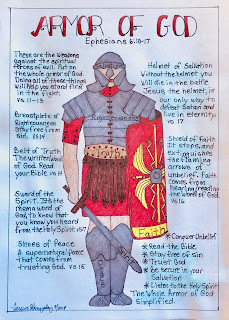 ARMOR OF GOD
Ephesians 6:10-17
These are the weapons
against the spiritual
forces of evil. Put on
the whole armor of God.
Doing all of these things
will help you stand firm
in the fight.
vs 11-13
Breastplate of
Righteousness
Stay free from
Sin. vs 14
Belt of Truth
The written Word
of God. Read
your Bible. vs 14
Sword of the
Spirit. It's the
rhema word of
God. To know that
you know you heard
from the Holy Spirit vs17
Shoes of Peace
A supernatural peace
that comes from
trusting God. vs 15
Helmet of Salvation
Without the helmet you
will die in the battle
Jesus, the helmet, is
our only way to
defeat Satan and live
in eternity.
vs 17
Shield of Faith
It stops, and
extinguishes
the flaming
arrows of
unbelief. Faith
comes from
hearing/reading
the Word of God.
vs 16
Righteousness
Faith
Conquer Unbelief
* Read the Bible
* Stay free of sin
* Trust God
* Be secure in your
Salvation
* Listen to the Holy Spirit
The Whole Armor of God
Simplified.